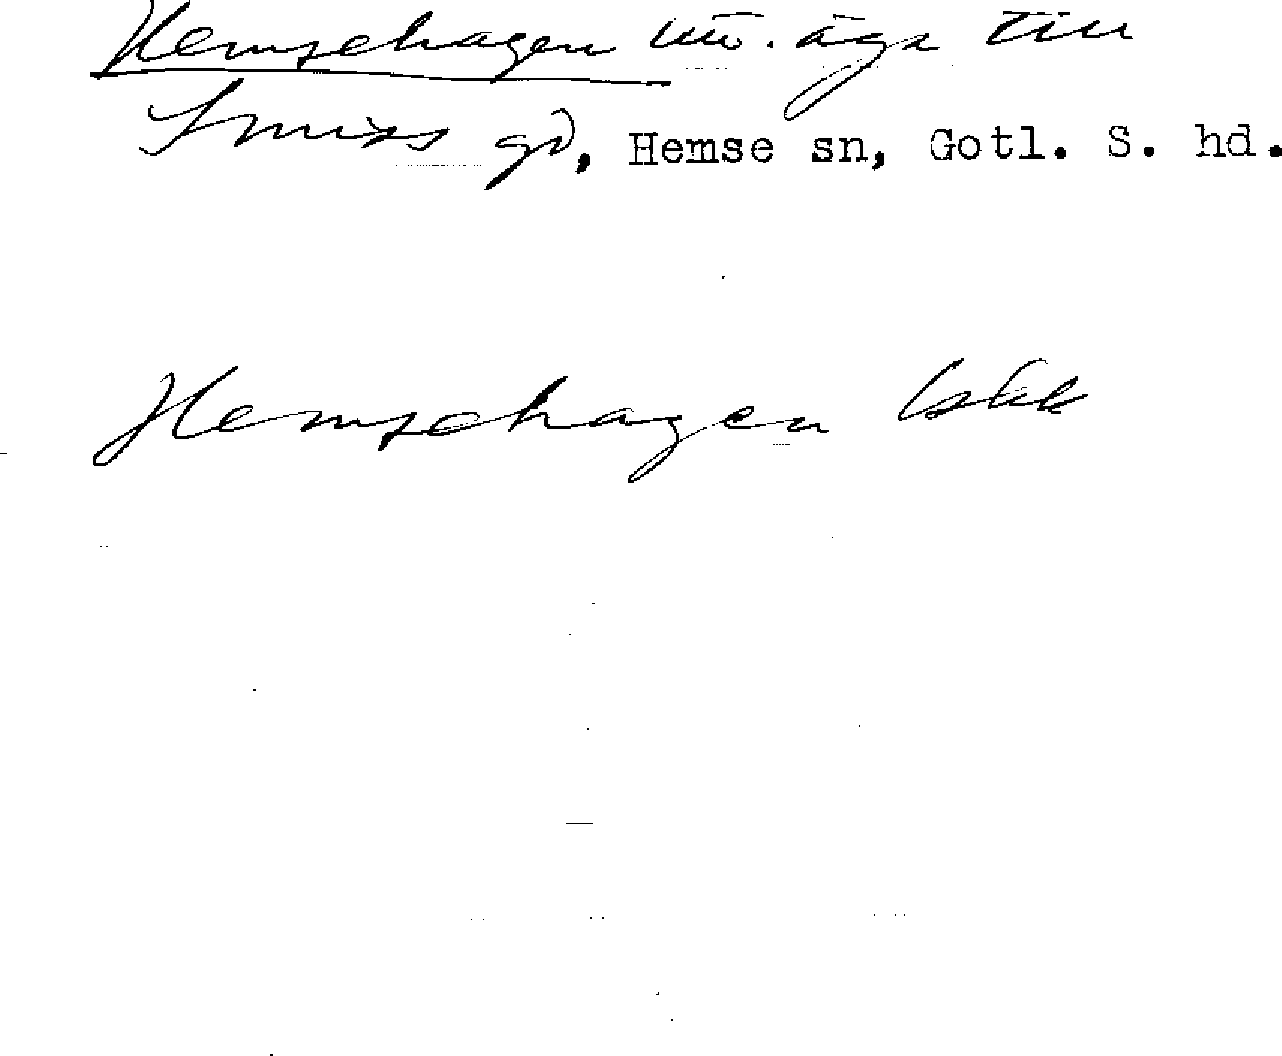 Hemsehagen utr. äga till
Smiss gd, Hemse sn, Gotl. S. hd.
Hemsehagen